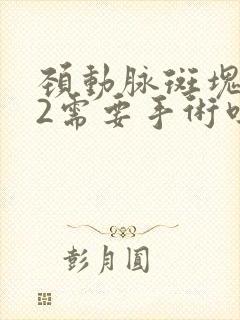 頚動脈斑塊
2需要手術
彭月圓